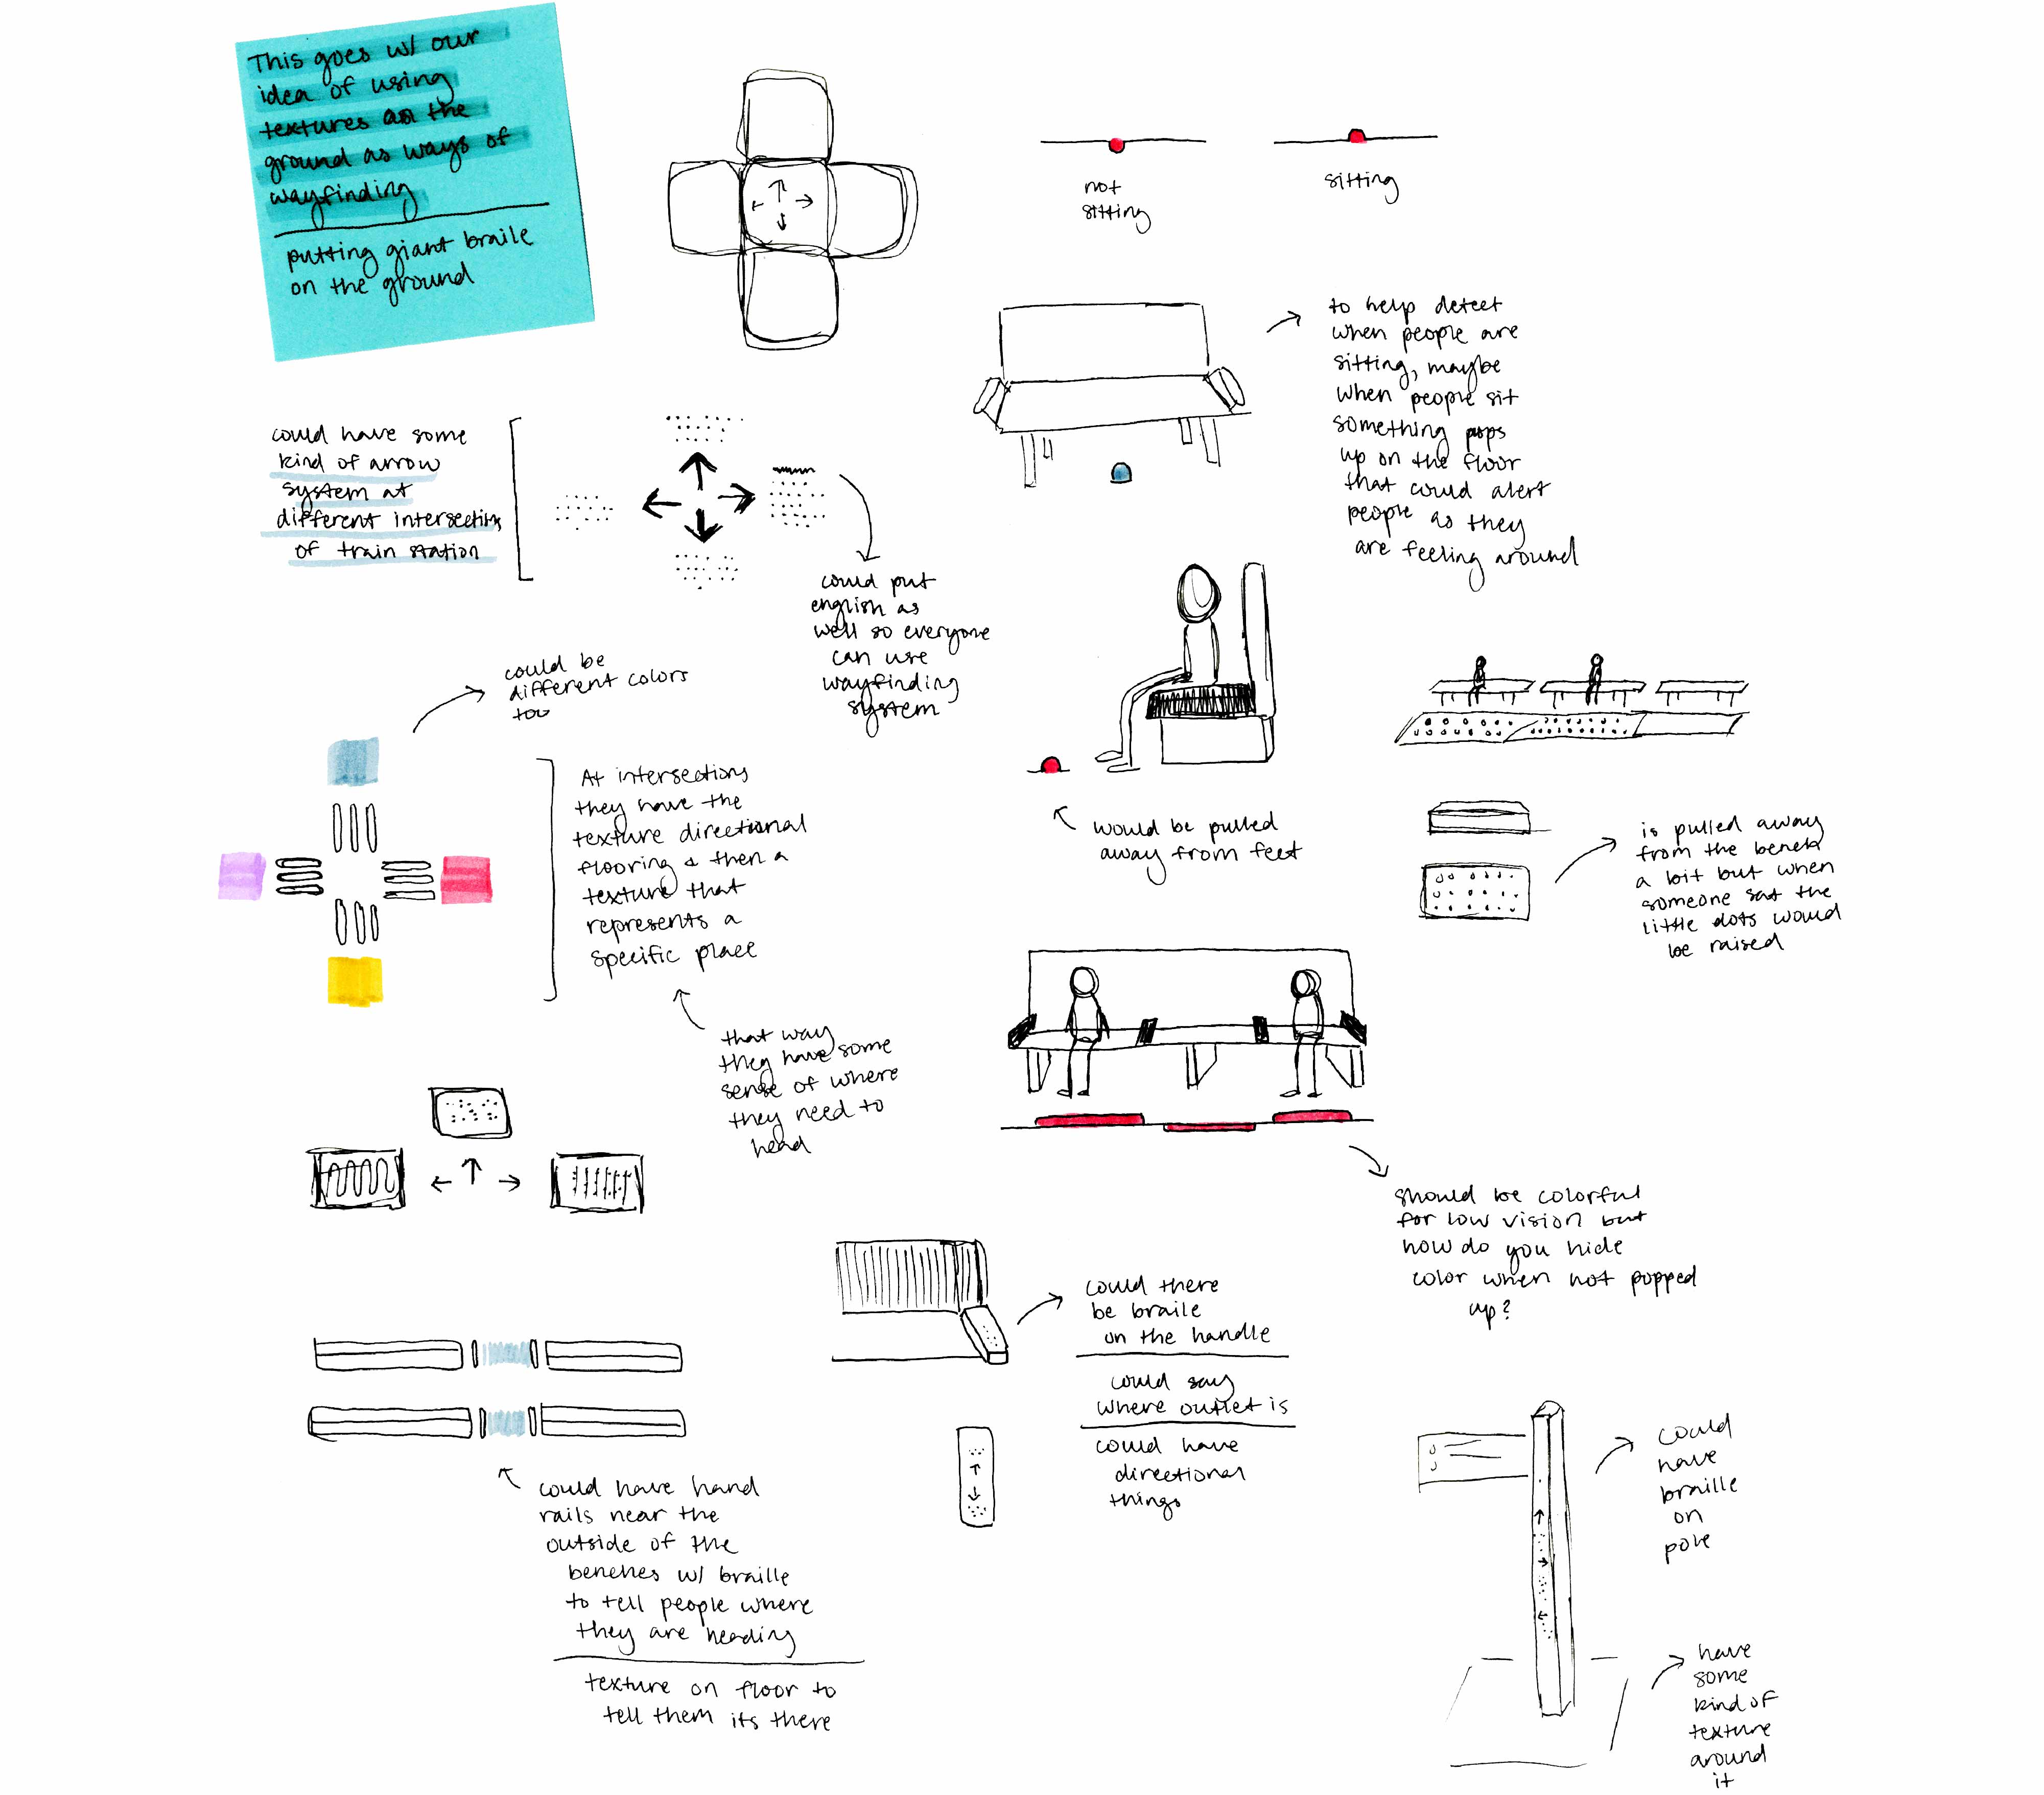 This goes w/ our
idea of using
textures on the
ground as ways of
wayfinding
putting giant braile
on the ground
not
sitting
sitting
to help detect
when people are
sitting, maybe
when people sit
something pops
up on the floor
that could alert
people as they
are feeling around
could have some
kind of arrow
system at
different intersections
of train station
could put
english as
well so everyone
can use
wayfinding
system
could be
different colors
too
At intersections
they have the
texture directional
flooring & then a
texture that
represents a
specific place
that way
they have some
sense of where
they need to
head
would be pulled
away from feet
is pulled away
from the bench
a bit but when
someone sat the
little dots would
be raised
should be colorful
for low vision but
how do you hide
color when not popped
up?
could there
be braile
on the handle
could say
where outlet is
could have
directional
things
could have hand
rails near the
outside of the
benches w/ braille
to tell people where
they are heading
texture on floor to
tell them its there
could
have
braille
on
pole
have
some
kind of
texture
around
it